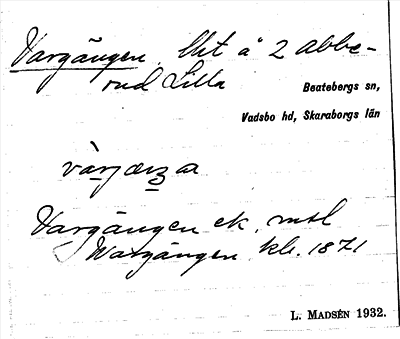 Vargången. Utt å 2 Abbe-
rud Lilla
Beatebergs sn,
Vadsbo hd, Skaraborgs län
Vargången ek. mtl
Wargången kb. 1871
L. MADSÉN 1932.